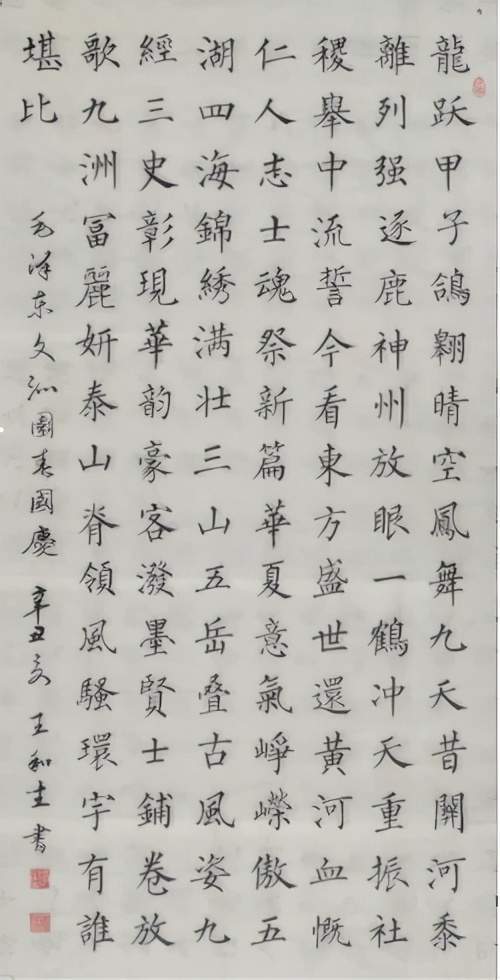 龍跃甲子鴿翱晴空鳳舞九天昔關河黍
離列强逐鹿神州放眼一鶴冲天重振社
稷舉中流誓今看東方盛世還黄河血慨
仁人志士魂祭新篇華夏意氣崢嶸傲五
湖四海錦綉满壮三山五岳叠古風姿九
經三史彰現華韵豪客潑墨賢士鋪卷放
歌九洲冨麗妍泰山脊領風騷環宇有誰
堪比
毛泽东文沁園春國慶 辛丑冬 王和生書